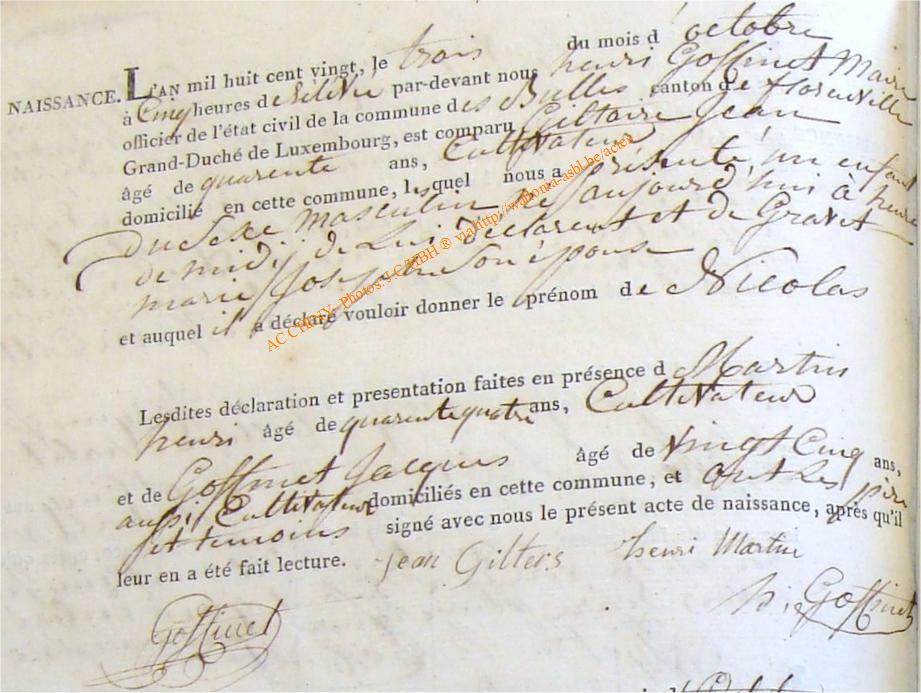 NAISSANCE. L'AN mil huit cent vingt, le trois du mois d octobre
à Cinq heures de relevée par-devant nous henri Goffinet Maire
officier de l'état civil de la commune des Bulles canton de florenville
Grand-Duché de Luxembourg, est comparu Giltaire Jean
âgé de quarente ans, Cultivateur
domicilié en cette commune, lequel nous a présenté un enfant
Du Sexe masculin né aujourd'hui à heure
de midij de Lui Déclarent et de Gravet
marie Joseph Son épouse
et auquel il a déclaré vouloir donner le prénom de Nicolas
Lesdites déclaration et presentation faites en présence d Martin
henri âgé de quarente quatre ans, Cultivateur
et de Goffinet Jacques âgé de vingt Cinq ans,
aussi Cultivateur domiciliés en cette commune, et ont Les père
et temoins signé avec nous le présent acte de naissance, après qu'il
leur en a été fait lecture. Jean Gilters henri Martin
h. Goffinet
Goffinet
AC CHINY - Photos: J-C MBH ® via http://wahonia-asbl.be/actes